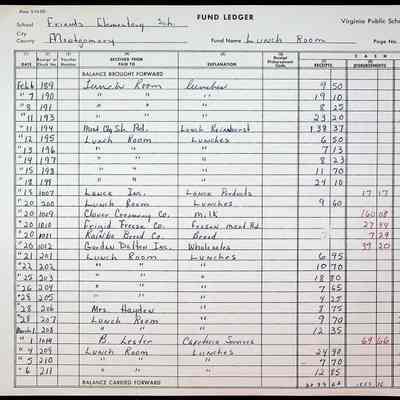 FUND LEDGER
Virginia Public Sch
School Friends Elementary Sch.
City
County Montgomery
Fund Name Lunch Room
Page No.
CASH
DATE RECEIVED FROM PAID TO EXPLANATION RECEIPTS DISBURSEMENTS
BALANCE BROUGHT FORWARD
Feb 6 189 Lunch Room Lunches 9 50
" 7 190 " " " 19 10
" 8 191 " " " 8 25
" 11 193 " " " 23 20
" 11 194 Lunch Reimburst 138 37
" 12 195 Lunch Room Lunches 6 50
" 13 196 " " " 7 13
" 14 197 " " " 8 23
" 15 193 " " " 11 70
" 18 199 " " " 24 10
" 18 1007 Lance Inc. Lance Products 17 17
" 20 200 Lunch Room Lunches 9 60
" 20 1009 Clover Creamery Co. Milk 160 08
" 20 1010 Frigid Freeze Co. Frozen 27 44
" 20 1011 Rainbo Bread Co. Bread 7 29
" 20 1012 Wholesalers 39 20
" 21 201 Lunch Room Lunches 6 95
" 22 202 " " " 10 70
" 25 203 " " " 18 80
" 26 204 " " " 7 65
" 28 205 " " " 4 25
" 28 206 Mrs. Hayden " 8 75
" 28 207 Lunch Room " 9 70
March 1 208 " " " 12 35
" 1 1014 B. Lester Cafeteria Services 69 66
" 4 209 Lunch Room Lunches 24 90
" 5 210 " " " 7 70
" 6 211 " " " 12 85
BALANCE CARRIED FORWARD